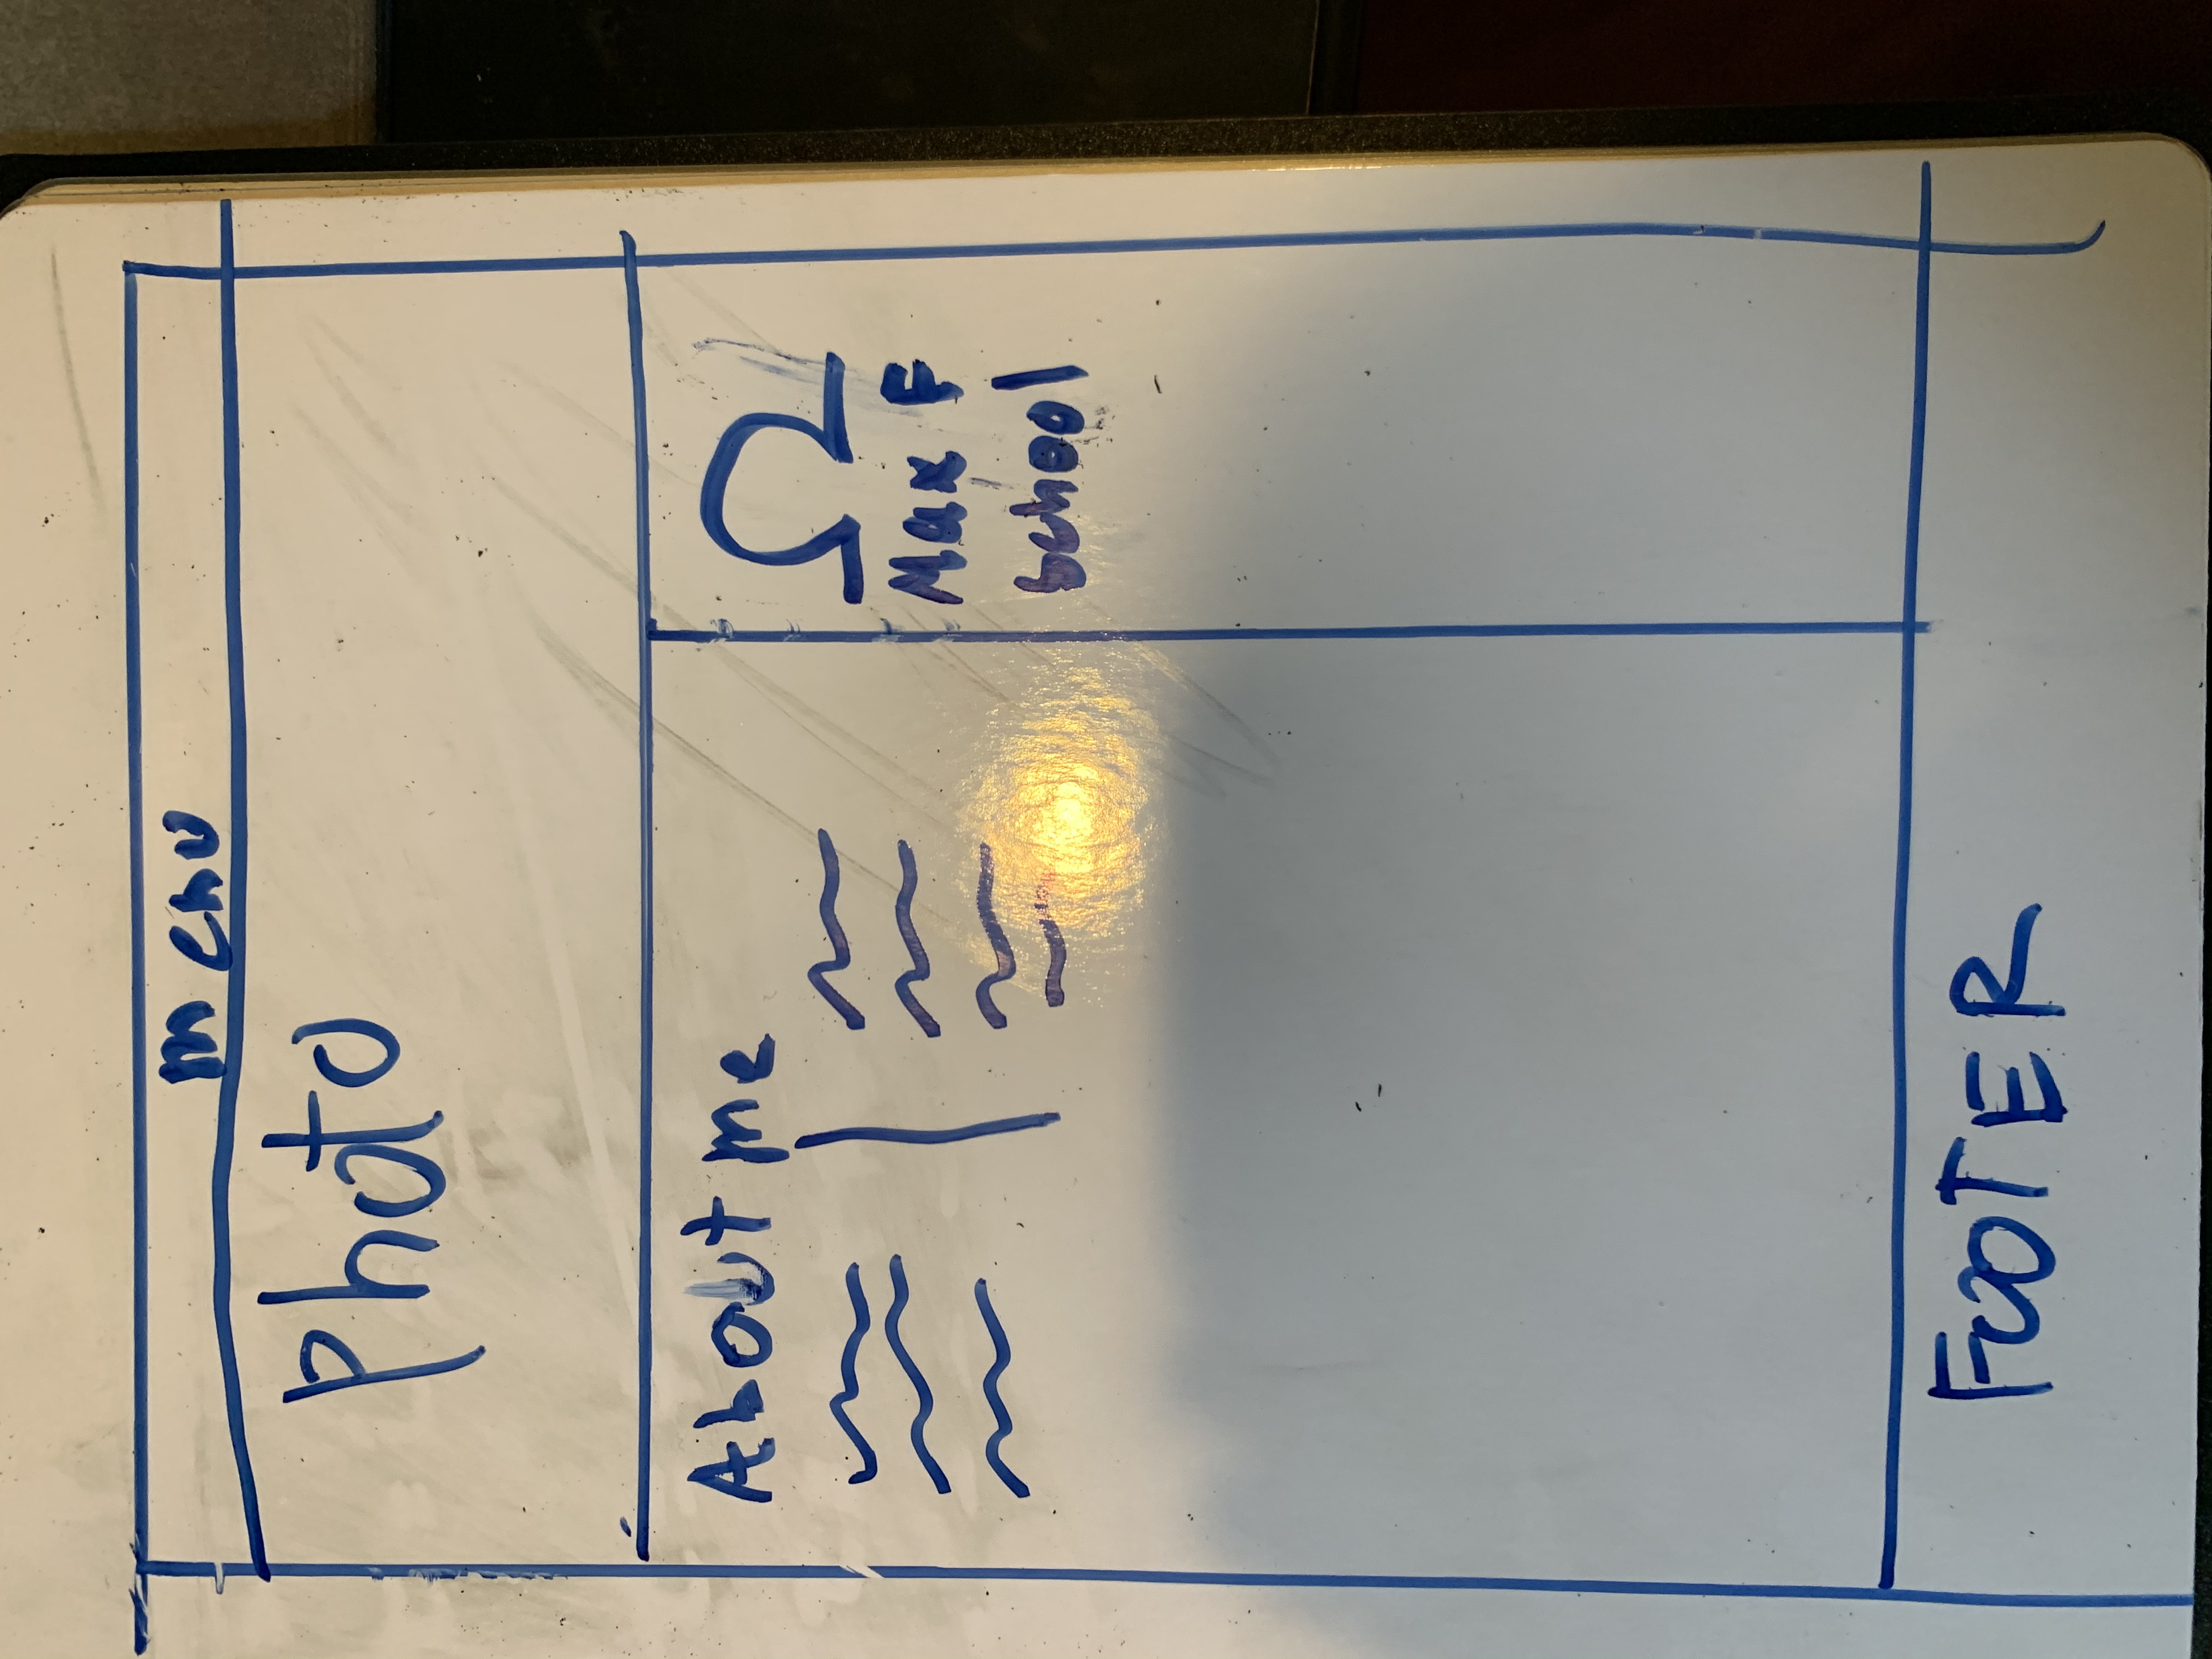 menu
Photo
About me
Ω
Max F
School
FOOTER